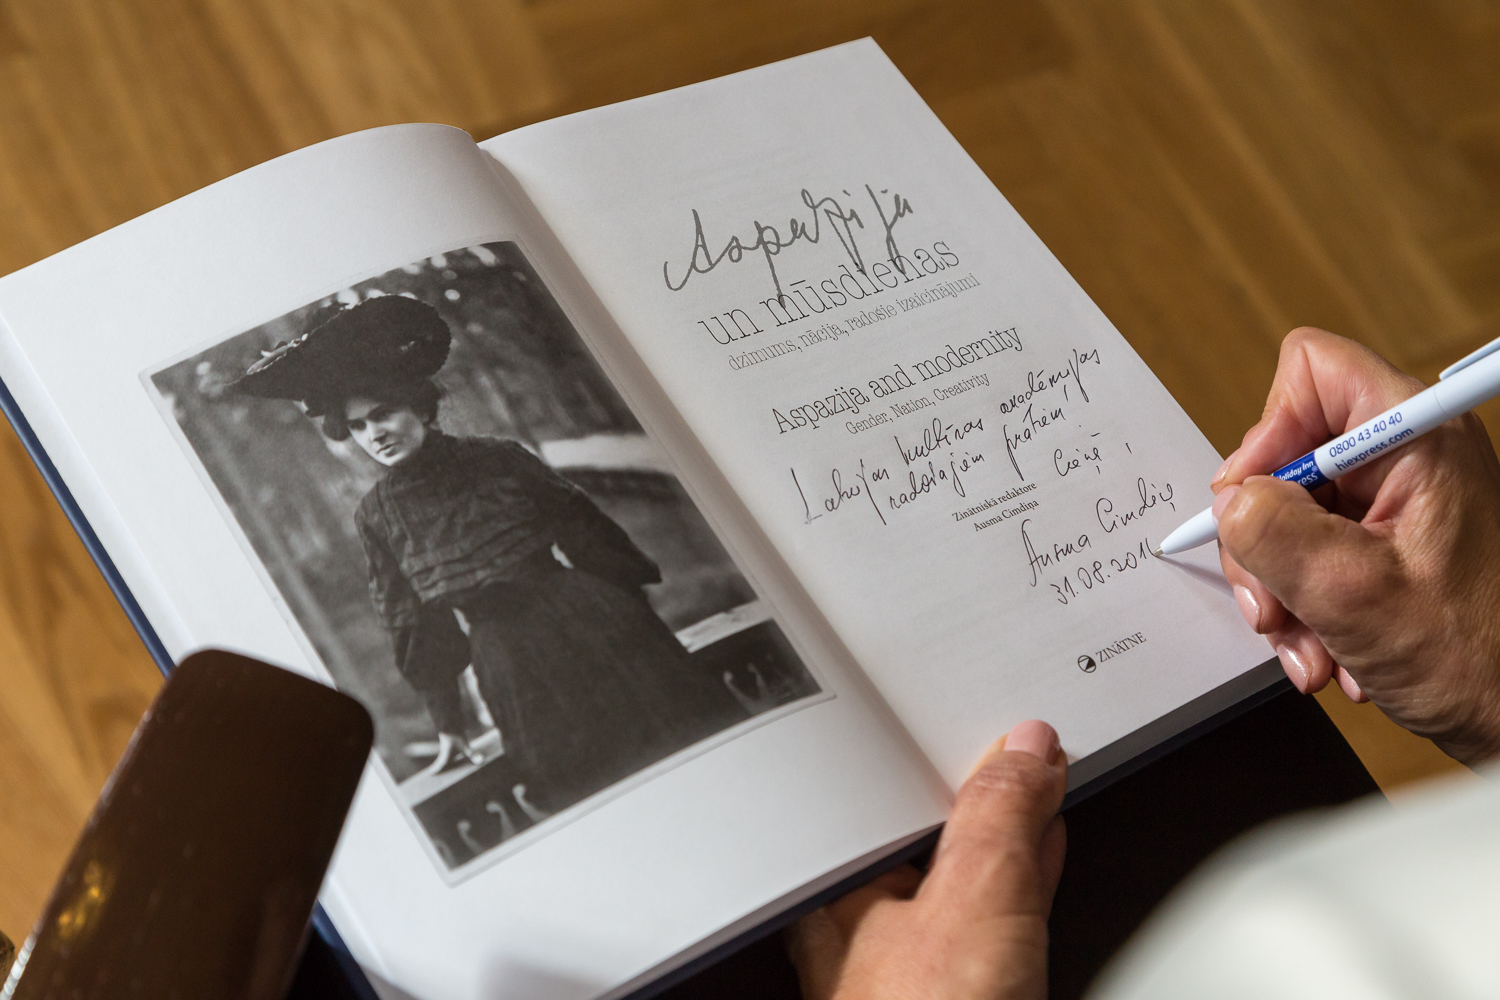 Aspazija
un mūsdienas
dzimums, nācija, radošie izaicinājumi
Aspazija and modernity
Gender, Nation, Creativity
Latvijas kultūras akadēmijas
radošajiem prātiem
Cieņā,
Zinātniskā redaktore
Ausma Cimdiņa
Ausma Cimdiņ
31.08.2016
ZINĀTNE
Holiday Inn
Express
0800 43 40 40
hiexpress.com